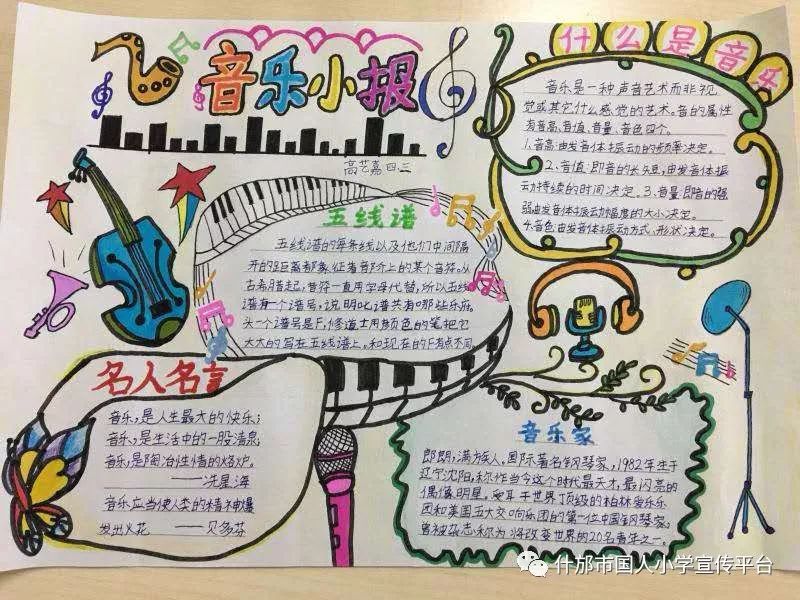 音乐小报
高艺嘉 四三
什么是音乐
音乐是一种声音艺术而非视
觉或其它什么感觉的艺术。音的属性
为音高、音值、音量、音色四个。
1.音高:由发音体振动的频率决定。
2、音值:即音的长短,由发音体振
动持续的时间决定。3、音量:即音的强
弱由发音体振动幅度的大小决定。
4.音色:由发音体振动方式、形状决定。
五线谱
五线谱的每条线以及他们中间隔
开的距离都象征着音阶上的某个音符。从
古希腊起,音符一直用字母代替,所以五线
谱有一个谱号,说明此谱共有哪些乐府。
头一个谱号是F,修道士用颜色的笔把它
大大的写在五线谱上,和现在的F有点不同。
名人名言
音乐,是人生最大的快乐;
音乐,是生活中的一股清泉;
音乐,是陶冶性情的熔炉。
——冼星海
音乐应当使人类的精神爆
发出火花 ——贝多芬
音乐家
郎朗,满族人。国际著名钢琴家,1982年生于
辽宁沈阳,称作当今这个时代最天才,最闪亮的
偶像明星。受聘于世界顶级的柏林爱乐乐
团和美国五大交响乐团的第一位中国钢琴家;
曾被杂志称为“将改变世界的20名青年之一。
什邡市国人小学宣传平台